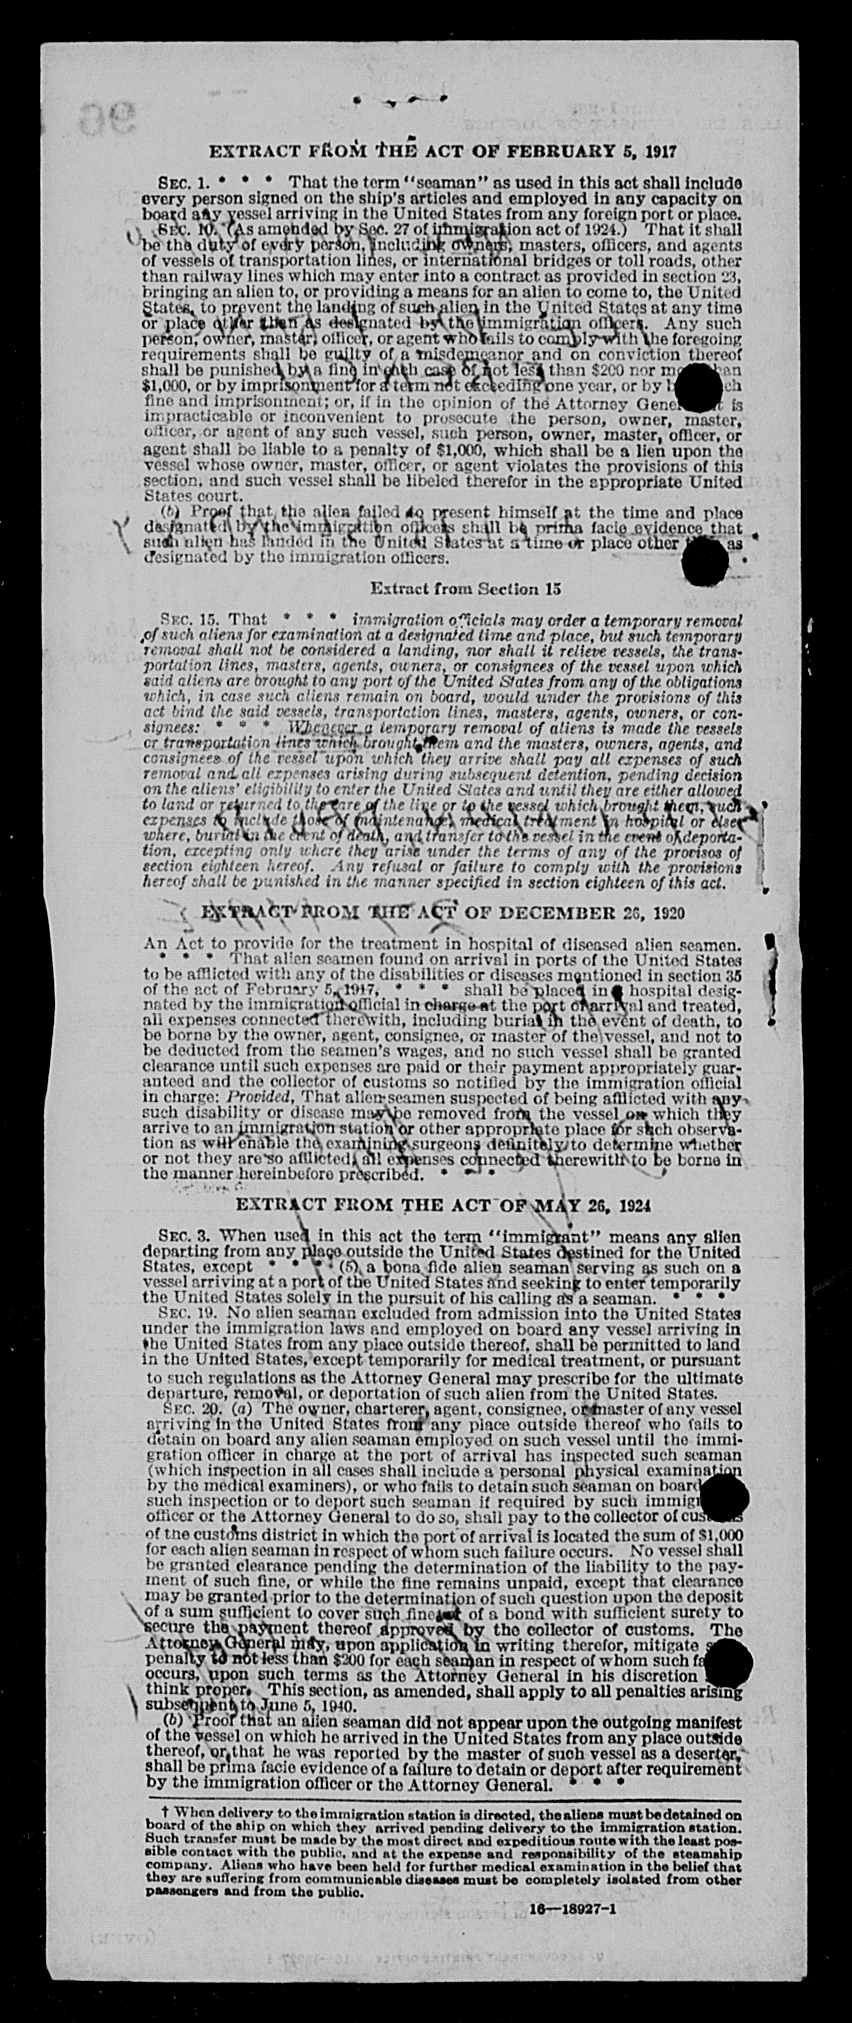 EXTRACT FROM THE ACT OF FEBRUARY 5, 1917
SEC. 1. * * * That the term "seaman" as used in this act shall include
every person signed on the ship's articles and employed in any capacity on
board any vessel arriving in the United States from any foreign port or place.
SEC. 10. (As amended by Sec. 27 of immigration act of 1924.) That it shall
be the duty of every person, including owners, masters, officers, and agents
of vessels of transportation lines, or international bridges or toll roads, other
than railway lines which may enter into a contract as provided in section 23,
bringing an alien to, or providing a means for an alien to come to, the United
States, to prevent the landing of such alien in the United States at any time
or place other than as designated by the immigration officers. Any such
person, owner, master, officer, or agent who fails to comply with the foregoing
requirements shall be guilty of a misdemeanor and on conviction thereof
shall be punished by a fine in each case of not less than $200 nor more than
$1,000, or by imprisonment for a term not exceeding one year, or by both such
fine and imprisonment; or, if in the opinion of the Attorney General it is
impracticable or inconvenient to prosecute the person, owner, master,
officer, or agent of any such vessel, such person, owner, master, officer, or
agent shall be liable to a penalty of $1,000, which shall be a lien upon the
vessel whose owner, master, officer, or agent violates the provisions of this
section, and such vessel shall be libeled therefor in the appropriate United
States court.
(b) Proof that the alien failed to present himself at the time and place
designated by the immigration officers shall be prima facie evidence that
such alien has landed in the United States at a time or place other than as
designated by the immigration officers.
Extract from Section 15
SEC. 15. That * * * immigration officials may order a temporary removal
of such aliens for examination at a designated time and place, but such temporary
removal shall not be considered a landing, nor shall it relieve vessels, the trans-
portation lines, masters, agents, owners, or consignees of the vessel upon which
said aliens are brought to any port of the United States from any of the obligations
which, in case such aliens remain on board, would under the provisions of this
act bind the said vessels, transportation lines, masters, agents, owners, or con-
signees: * * * Whenever a temporary removal of aliens is made the vessels
or transportation lines which brought them and the masters, owners, agents, and
consignees of the vessel upon which they arrive shall pay all expenses of such
removal and all expenses arising during subsequent detention, pending decision
on the aliens' eligibility to enter the United States and until they are either allowed
to land or returned to the care of the line or to the vessel which brought them, such
expenses to include those of maintenance, medical treatment in hospital or else-
where, burial in the event of death, and transfer to the vessel in the event of deporta-
tion, excepting only where they arise under the terms of any of the provisos of
section eighteen hereof. Any refusal or failure to comply with the provisions
hereof shall be punished in the manner specified in section eighteen of this act.
EXTRACT FROM THE ACT OF DECEMBER 26, 1920
An Act to provide for the treatment in hospital of diseased alien seamen.
* * * That alien seamen found on arrival in ports of the United States
to be afflicted with any of the disabilities or diseases mentioned in section 35
of the act of February 5, 1917, * * * shall be placed in a hospital desig-
nated by the immigration official in charge at the port of arrival and treated,
all expenses connected therewith, including burial in the event of death, to
be borne by the owner, agent, consignee, or master of the vessel, and not to
be deducted from the seamen's wages, and no such vessel shall be granted
clearance until such expenses are paid or their payment appropriately guar-
anteed and the collector of customs so notified by the immigration official
in charge: Provided, That alien seamen suspected of being afflicted with any
such disability or disease may be removed from the vessel on which they
arrive to an immigration station or other appropriate place for such observa-
tion as will enable the examining surgeons definitely to determine whether
or not they are so afflicted, all expenses connected therewith to be borne in
the manner hereinbefore prescribed. * * *
EXTRACT FROM THE ACT OF MAY 26, 1924
SEC. 3. When used in this act the term "immigrant" means any alien
departing from any place outside the United States destined for the United
States, except * * * (5) a bona fide alien seaman serving as such on a
vessel arriving at a port of the United States and seeking to enter temporarily
the United States solely in the pursuit of his calling as a seaman. * * *
SEC. 19. No alien seaman excluded from admission into the United States
under the immigration laws and employed on board any vessel arriving in
the United States from any place outside thereof, shall be permitted to land
in the United States, except temporarily for medical treatment, or pursuant
to such regulations as the Attorney General may prescribe for the ultimate
departure, removal, or deportation of such alien from the United States.
SEC. 20. (a) The owner, charterer, agent, consignee, or master of any vessel
arriving in the United States from any place outside thereof who fails to
detain on board any alien seaman employed on such vessel until the immi-
gration officer in charge at the port of arrival has inspected such seaman
(which inspection in all cases shall include a personal physical examination
by the medical examiners), or who fails to detain such seaman on board
such inspection or to deport such seaman if required by such immigration
officer or the Attorney General to do so, shall pay to the collector of customs
of the customs district in which the port of arrival is located the sum of $1,000
for each alien seaman in respect of whom such failure occurs. No vessel shall
be granted clearance pending the determination of the liability to the pay-
ment of such fine, or while the fine remains unpaid, except that clearance
may be granted prior to the determination of such question upon the deposit
of a sum sufficient to cover such fine or of a bond with sufficient surety to
secure the payment thereof approved by the collector of customs. The
Attorney General may, upon application in writing therefor, mitigate such
penalty to not less than $200 for each seaman in respect of whom such failure
occurs, upon such terms as the Attorney General in his discretion
think proper. This section, as amended, shall apply to all penalties arising
subsequent to June 5, 1940.
(b) Proof that an alien seaman did not appear upon the outgoing manifest
of the vessel on which he arrived in the United States from any place outside
thereof, or that he was reported by the master of such vessel as a deserter,
shall be prima facie evidence of a failure to detain or deport after requirement
by the immigration officer or the Attorney General. * * *
† When delivery to the immigration station is directed, the aliens must be detained on
board of the ship on which they arrived pending delivery to the immigration station.
Such transfer must be made by the most direct and expeditious route with the least pos-
sible contact with the public, and at the expense and responsibility of the steamship
company. Aliens who have been held for further medical examination in the belief that
they are suffering from communicable diseases must be completely isolated from other
passengers and from the public.
16—18927-1